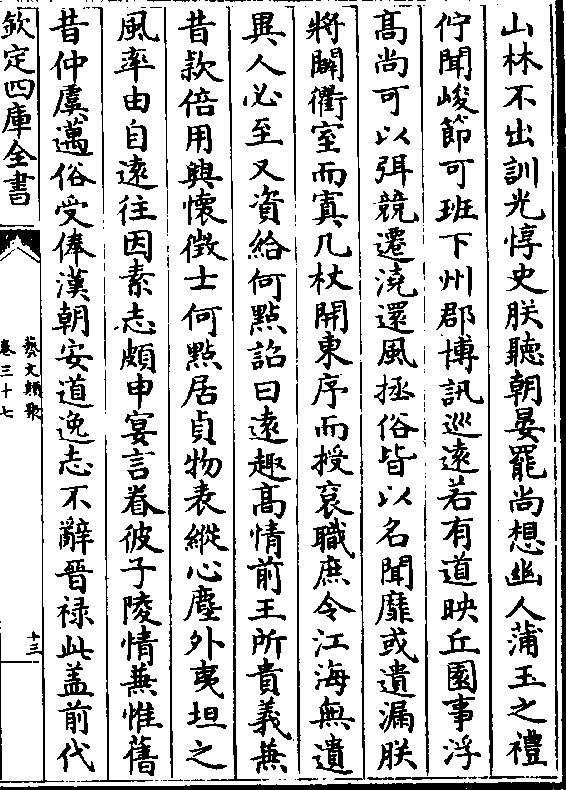 山林不出訓光惇史朕聽朝晏罷尚想幽人蒲玉之禮
佇聞峻節可班下州郡博訊巡遠若有道映丘園事浮
髙尚可以弭競遷澆還風拯俗皆以名聞靡或遺漏朕
將闢衢室而寘几杖開東序而授衮職庶令江海無遺
異人必至又資給何㸃詔曰遠趣髙情前王所貴義兼
昔款倍用興懷徴士何㸃居貞物表縱心塵外夷坦之
風率由自遠往因素志頗申宴言眷彼子陵情兼惟舊
昔仲虞邁俗受俸漢朝安道逸志不辭晉禄此盖前代
欽定四庫全書
藝文類聚
卷三十七
十三